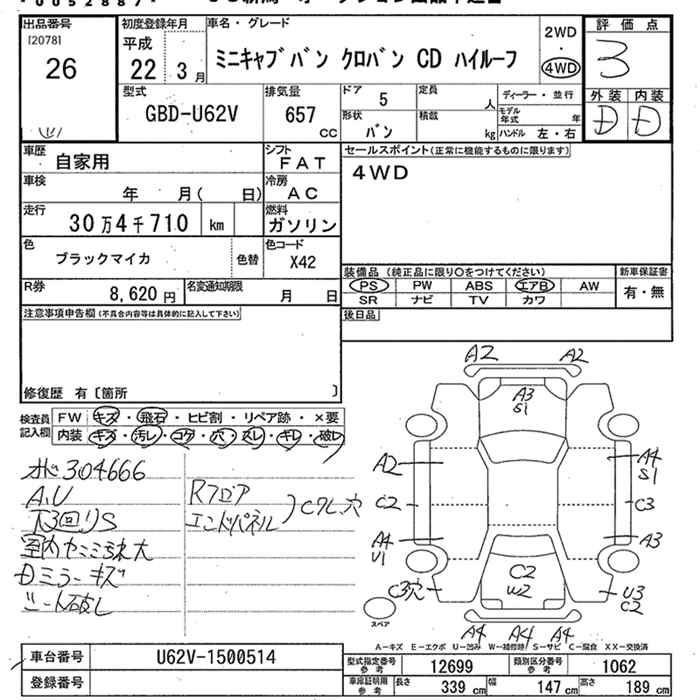 出品番号
[2078]
26
初度登録年月
平成
22 3 月
車名・グレード
ミニキャブバン クロバン CD ハイルーフ
2WD
・
4WD
評価点
3
外装 内装
D D
型式
GBD-U62V
排気量
657
cc
ドア 5
形状 バン
定員 人
積載 kg
ディーラー・並行
モデル年式 年
ハンドル 左・右
車歴
自家用
車検
年 月( 日)
走行
30万4千710 km
シフト
FAT
冷房
AC
燃料
ガソリン
セールスポイント(正常に機能するものに限ります)
4WD
色
ブラックマイカ
色替
色コード
X42
R券
8,620 円
名変通知期限
月 日
装備品(純正品に限り○をつけてください)
PS PW ABS エアB AW
SR ナビ TV カワ
新車保証書
有・無
後日品
注意事項申告欄(不具合内容等は具体的に記入して下さい)
修復歴 有〔箇所 〕
検査員記入欄
FW キズ・飛石・ヒビ割・リペア跡・×要
内装 キズ・汚レ・コゲ・穴・スレ・キレ・破レ
304666
A.U
下回りS
Dミラーキズ
シート破レ
Rフロア
エンドパネル
Cクレ.穴
A2 A2
A3
S1
A2
A4
S1
C2
C3
A4
U1
A3
C2
W2
C3穴
U3
C2
A4 A4 A4
スペア
A－キズ E－エクボ U－凹み W－補修跡 S－サビ C－腐食 XX－交換済
車台番号
U62V-1500514
登録番号
型式指定番号
参考
12699
類別区分番号
参考
1062
車庫証明用
参考
長さ 339 cm
幅 147 cm
高さ 189 cm